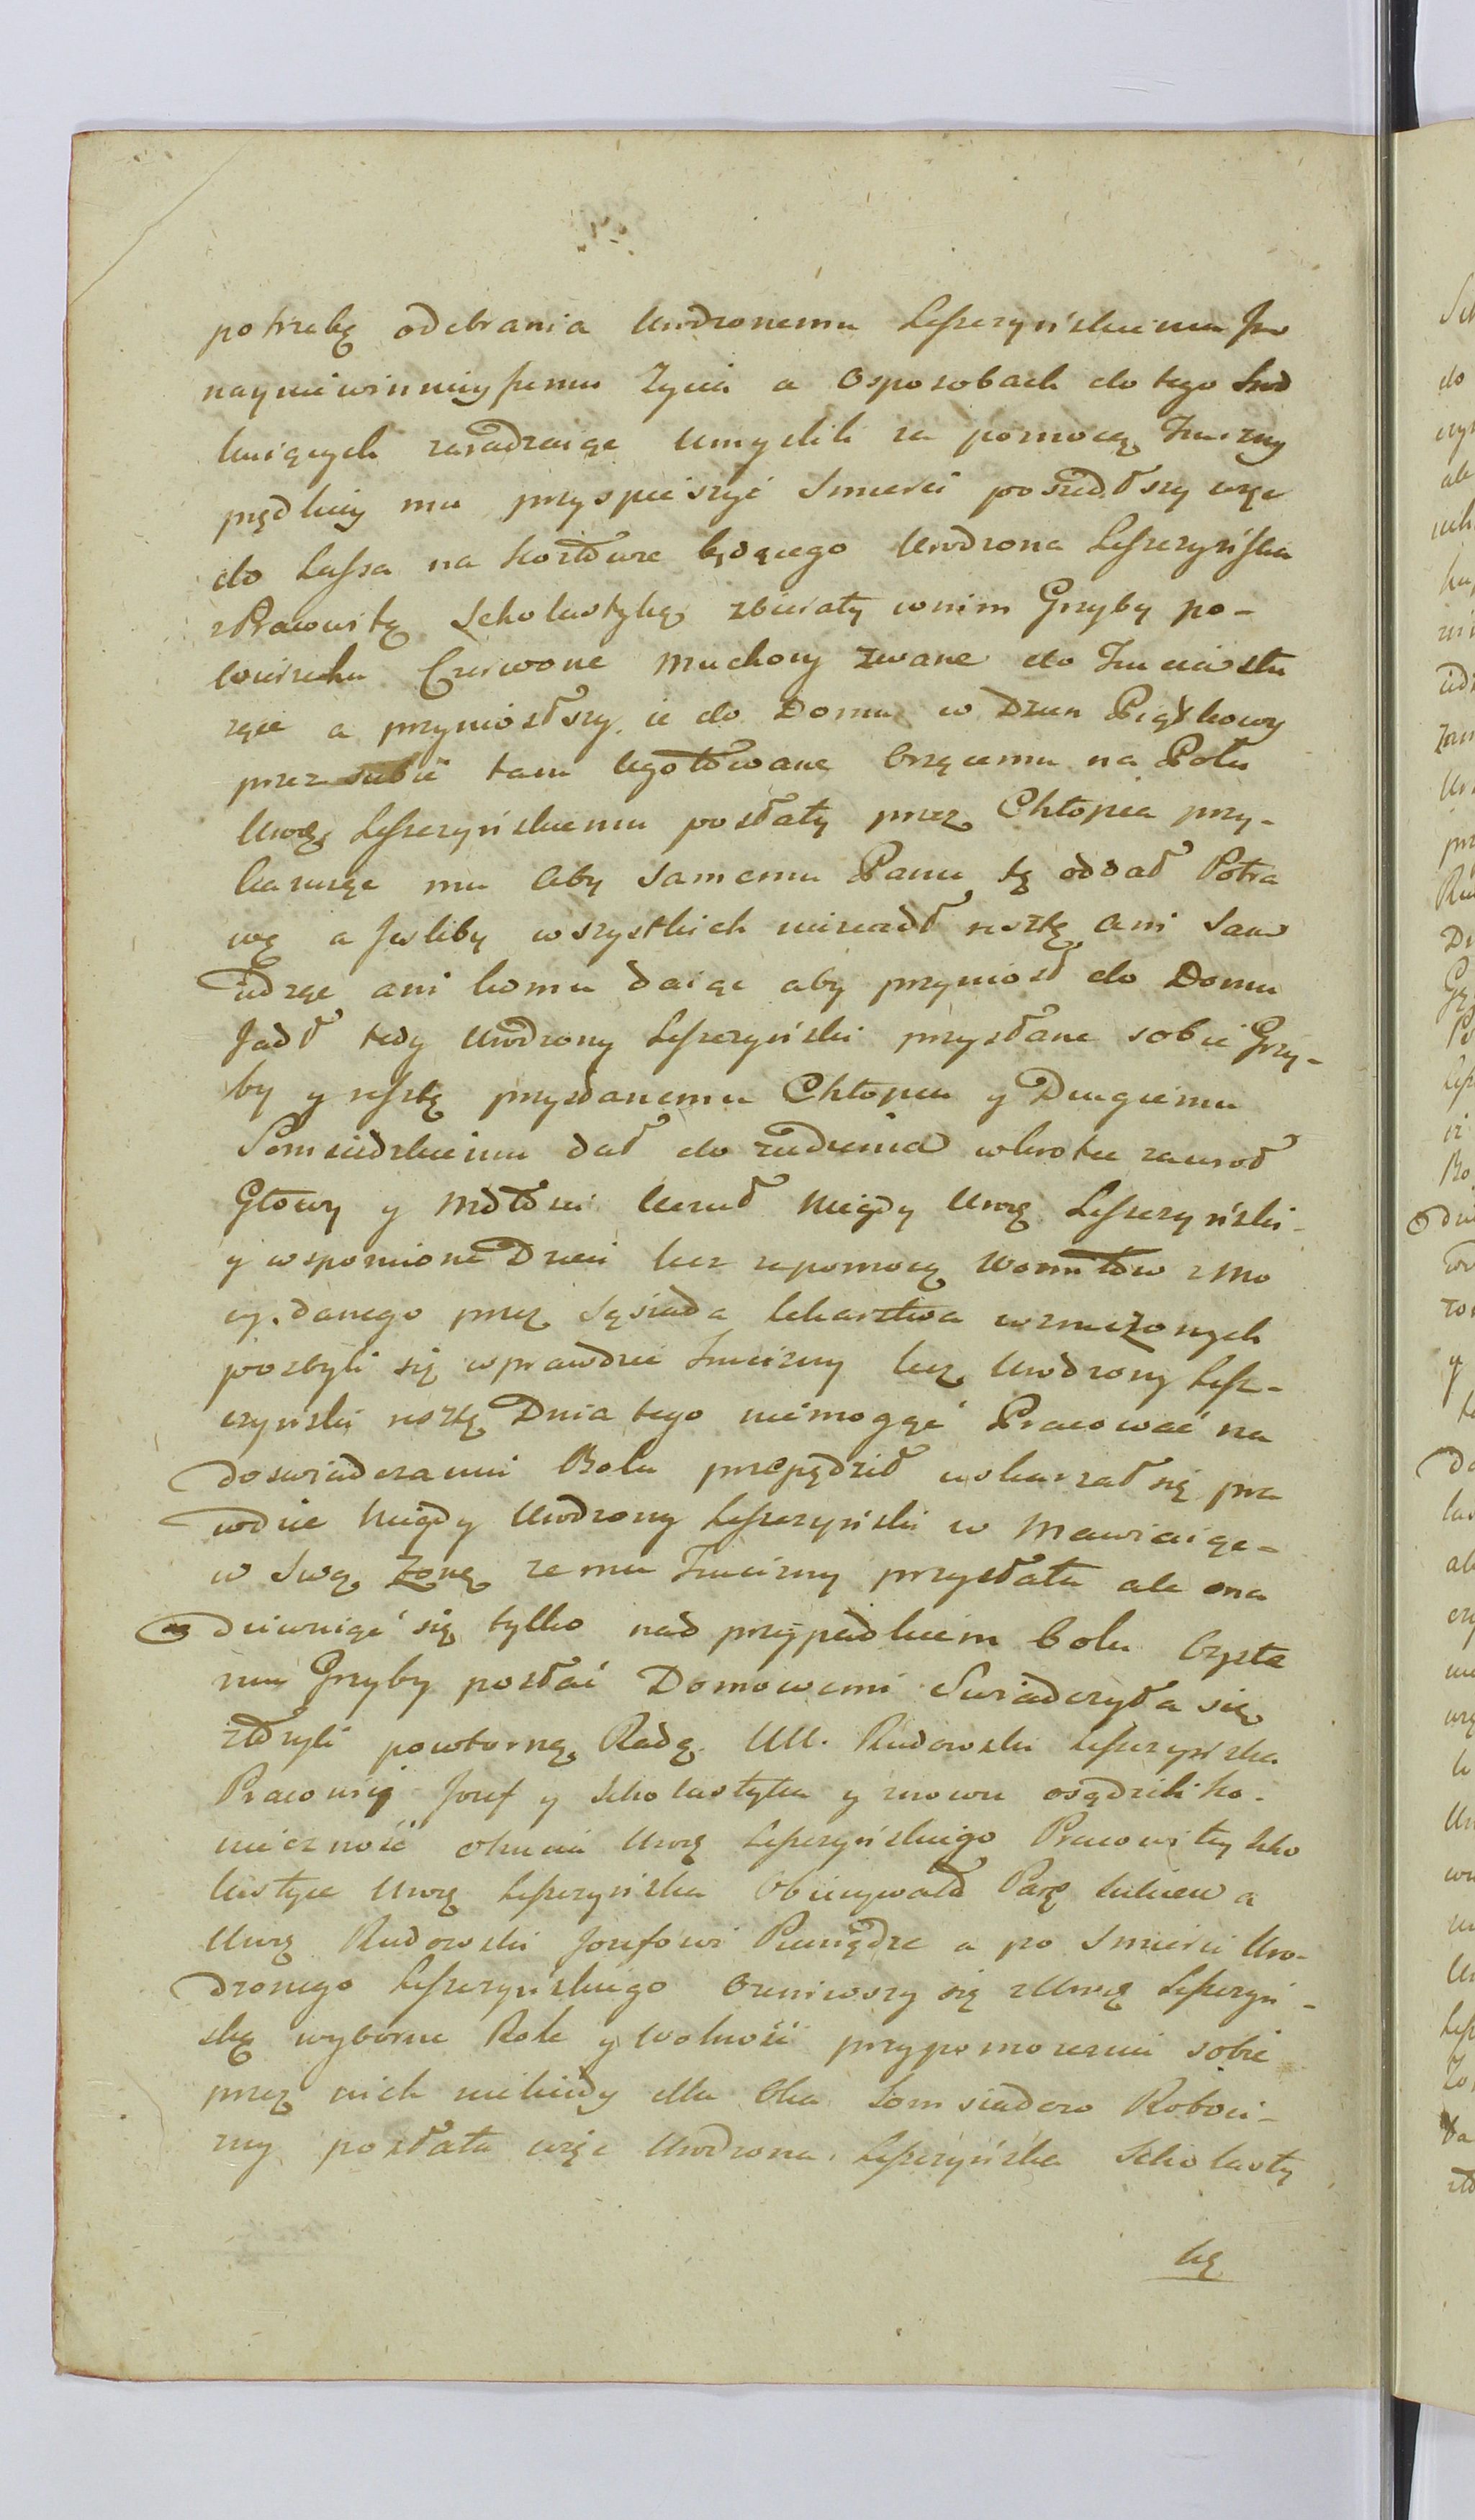 potrzebę odebrania Urodzonemu Leszczyńskiemu Jmo
nayniewinnieyszemu Życia a Osposobach do tego Słud
kuiących zaradzaiąc Umyslili za pomocą Trucizny
prędkiey mu przyspieszyć Smierci poszedłszy więc
do Lassa na Kozłowce będącego Urodzona Leszczyńska
z Pracowitą Scholastyką zbierały w nim Grzyby po-
wierzchu Czerwone Muchory zwane do Truciasłu
rące a przyniosłszy ie do Domu w Dzien Piątkowy
przez siebie tam Ugotowane Orzącemu na Polu
Urożę Leszczyńskiemu posłały przez Chłopca przy-
kazuiąc mu Aby samemu Panu tę oddał Potra
wę a Jesliby wszystkich niezjadł resztę ani sam
iedząc ani komu daiąc aby przyniosł do Domu
Jadł tedy Urodzony Leszczyński przysłane sobie Grzy-
by y resztę przydanemu Chłopcu y Drugiemu
Somsiedzkiemu dał do ziedzenia wkrotce zawrot
Głowy y Mdłosci Uczuł niegdy Urożę Leszczyński-
y wspomione Dzieci lecz zapomocą Womitow z Mo
cy danego przez Sąsiada lekarstwa wzruszonych
pozbyli się wprawdzie Trucizny lecz Urodzony Lesz-
czyński resztę Dnia tego niemogąć Pracować na
doswiadczaniu Bolu przepędził uskarzał się pra
wdzie niegdy Urodzony Leszczyński w Mawiaiąc-
w Swą Zonę ze mu Trucizny przysłała ale ona
dziwuiąć się tylko nad przypadkiem bolu Czyste
mu Grzyby posłać Domowemi Swiadczyła się
złozyli powtorną Radę UU. Rudowski Leszczyńska
Pracowici Jozef y Scholastyka y znowu osądzili ko-
nieczność otrucia Urożę Leszczyńskiego Pracowitey Scho
lastyce Urożę Leszczyńska Obiecywała Parę sukien a
Urożę Rudowski Jozefowi Pieniądze a po Smierci Uro-
dzonego Leszczyńskiego Ozeniwszy się z Urożę Leszczyń-
ską wyborne Role y Wolność przypomozeniu sobie
przez nich niekiedy dla Oka Somsiadow Roboci-
zny posłała więc Urodzona Leszczyńska Scholasty
kę